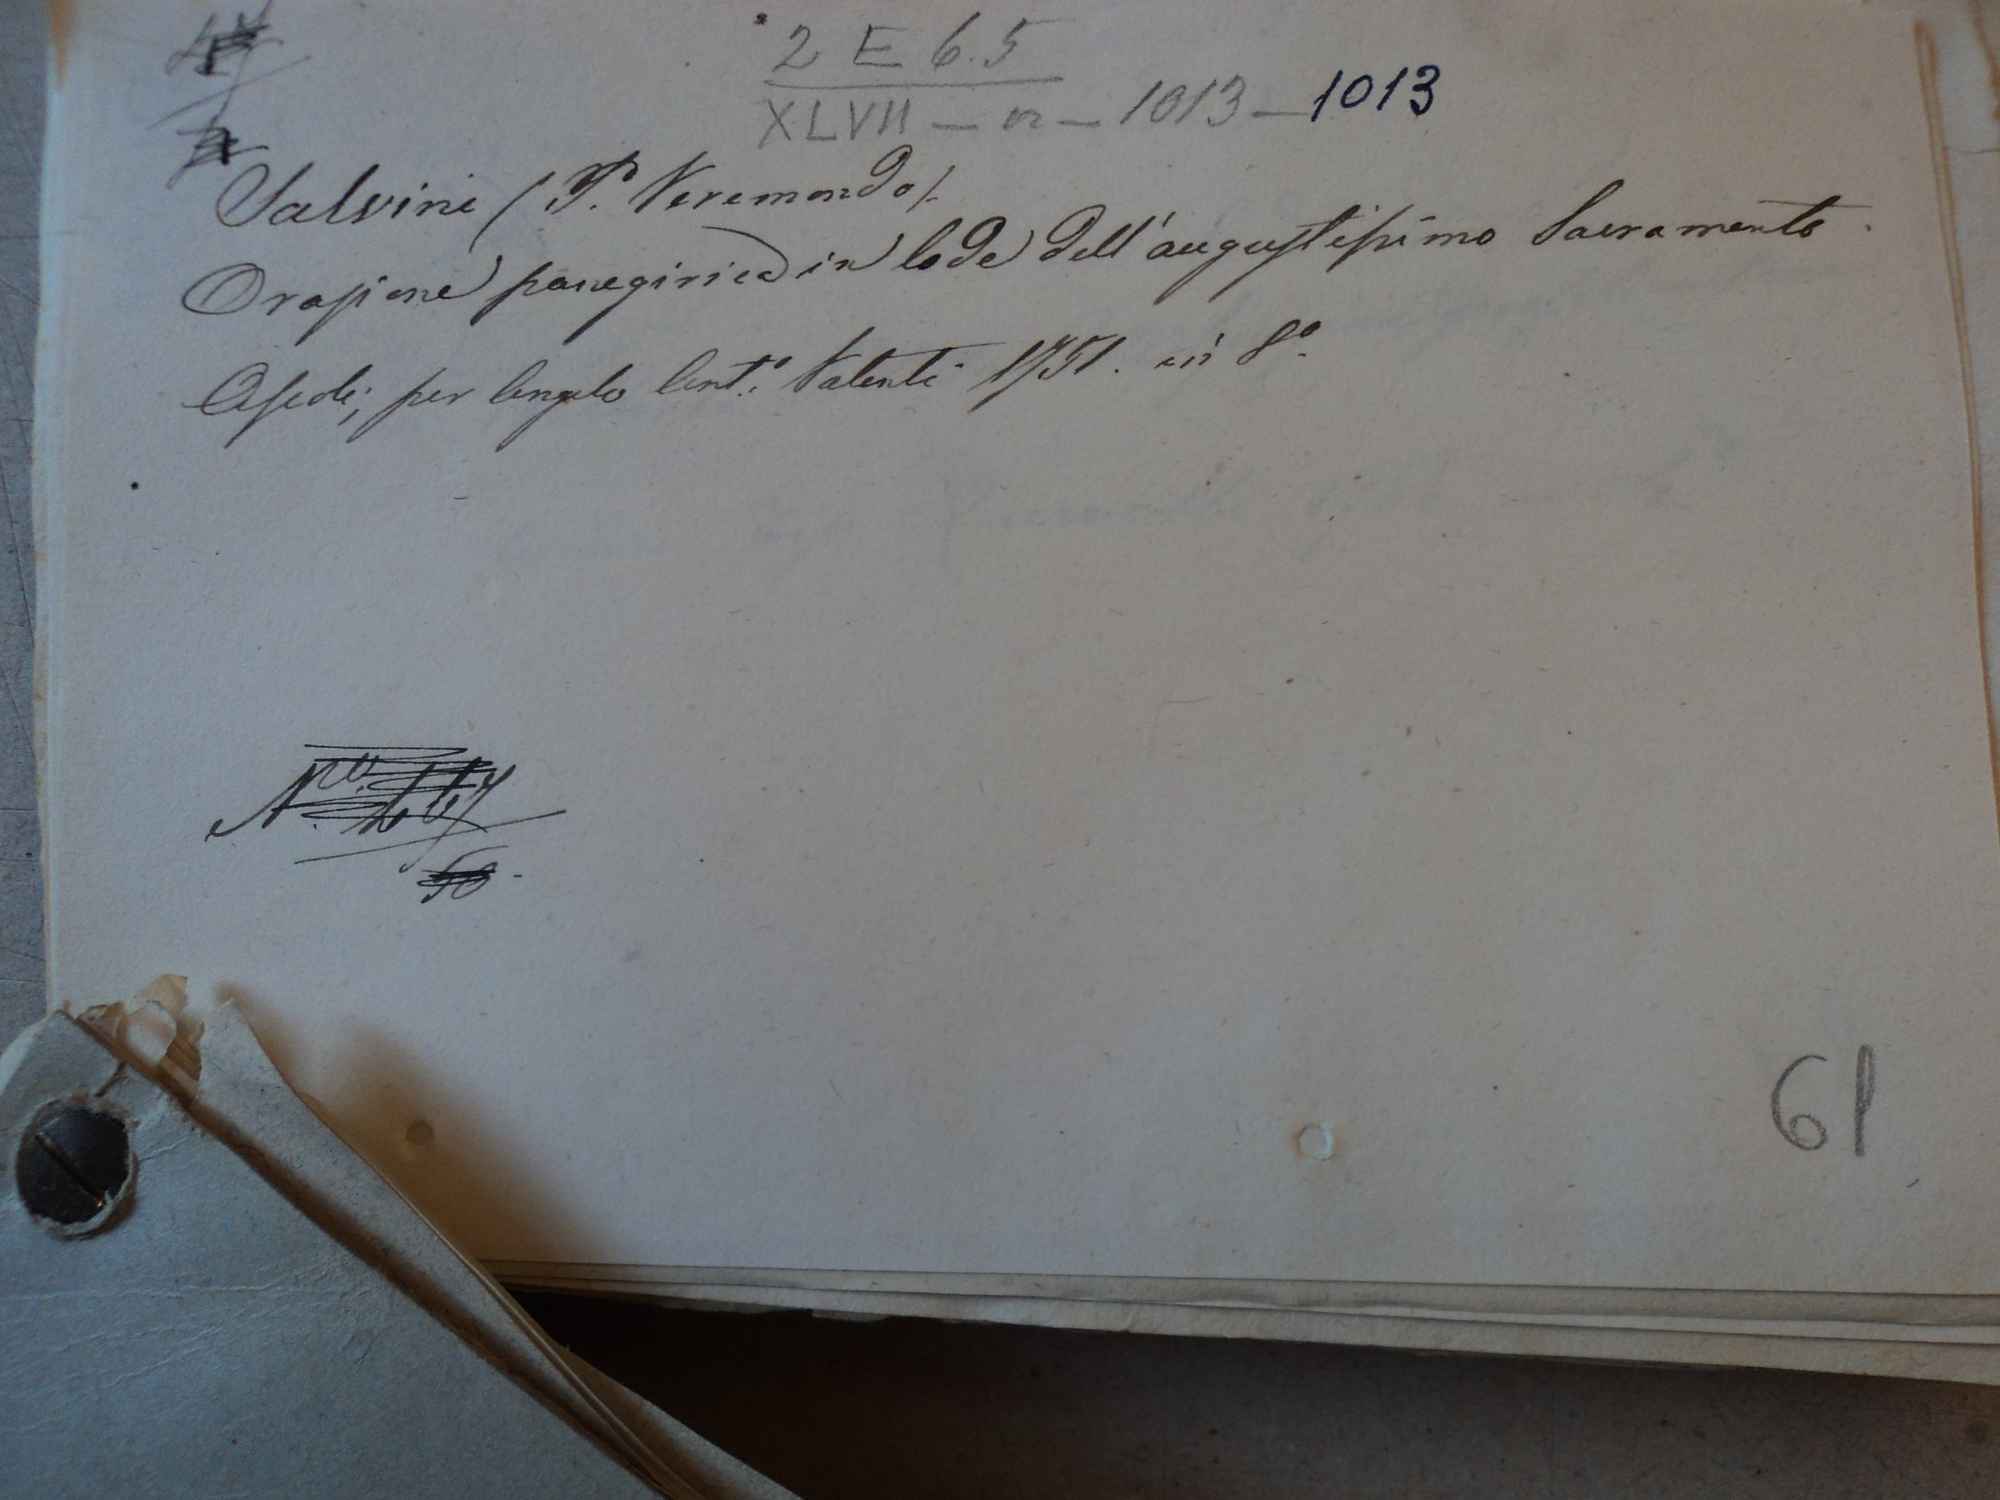 2 E 6.5
XLVII — n — 1013 — 1013
Salvini (P. Veremondo).
Orazione panegirica in lode dell'augustissimo Sacramento.
Ascoli, per Angelo Ant.º Valenti 1751. in 8º.
Nro.
61